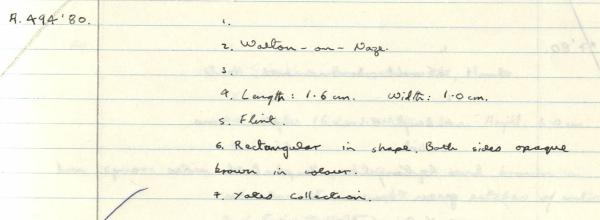 A. 494'80. 1.
2. Walton-on-Naze.
3.
4. Length: 1.6 cm. Width: 1.0 cm.
5. Flint.
6. Rectangular in shape. Both sides opaque
brown in colour.
7. Yates Collection.